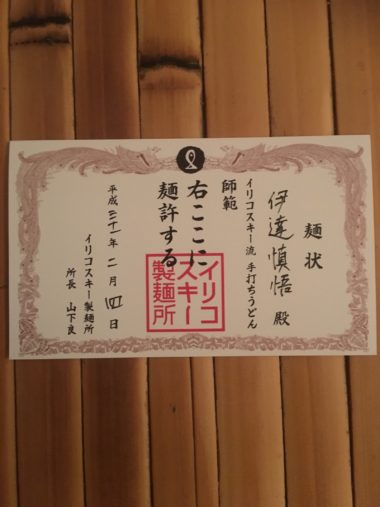 麺状
伊達慎悟 殿
イリコスキー流 手打ちうどん
師範
右ここに
麺許する
平成三十一年 二月 四日
イリコスキー製麺所
所長 山下良
イリコ
スキー
製麺所